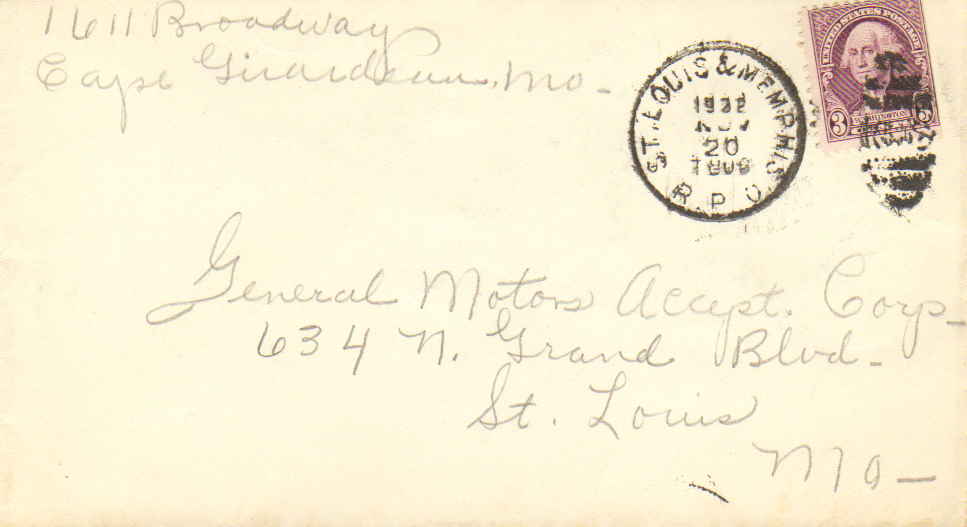 1611 Broadway
Cape Girardeau, Mo-
ST. LOUIS & MEMPHIS
1932
NOV
20
R.P.O.
UNITED STATES POSTAGE
3
WASHINGTON
General Motors Accept. Corp-
634 N. Grand Blvd-
St. Louis
Mo-